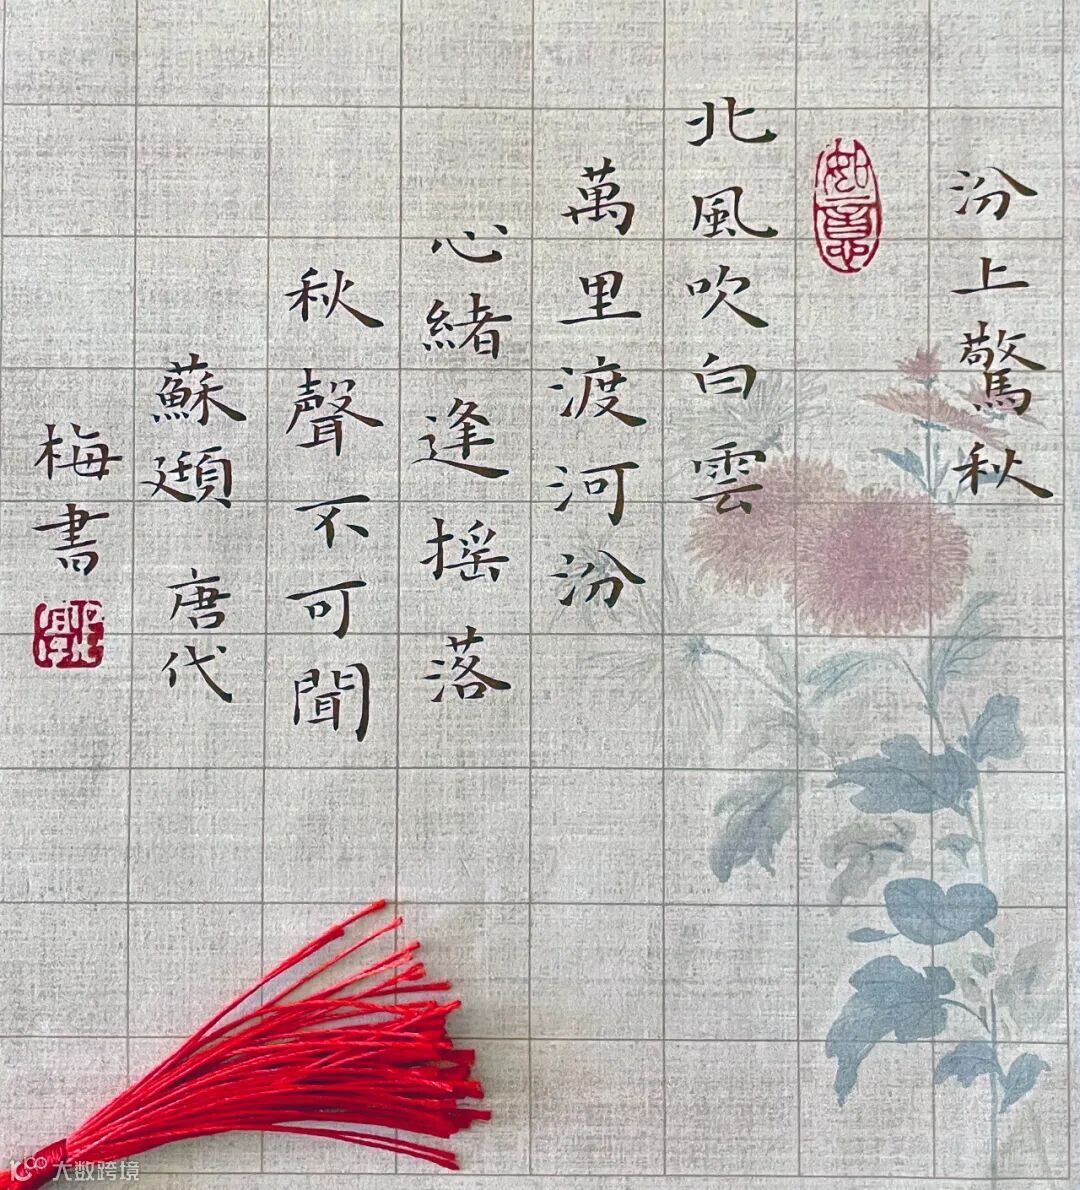 汾上驚秋
如意
北風吹白雲
萬里渡河汾
心緒逢摇落
秋聲不可聞
蘇頲 唐代
梅書
大数跨境